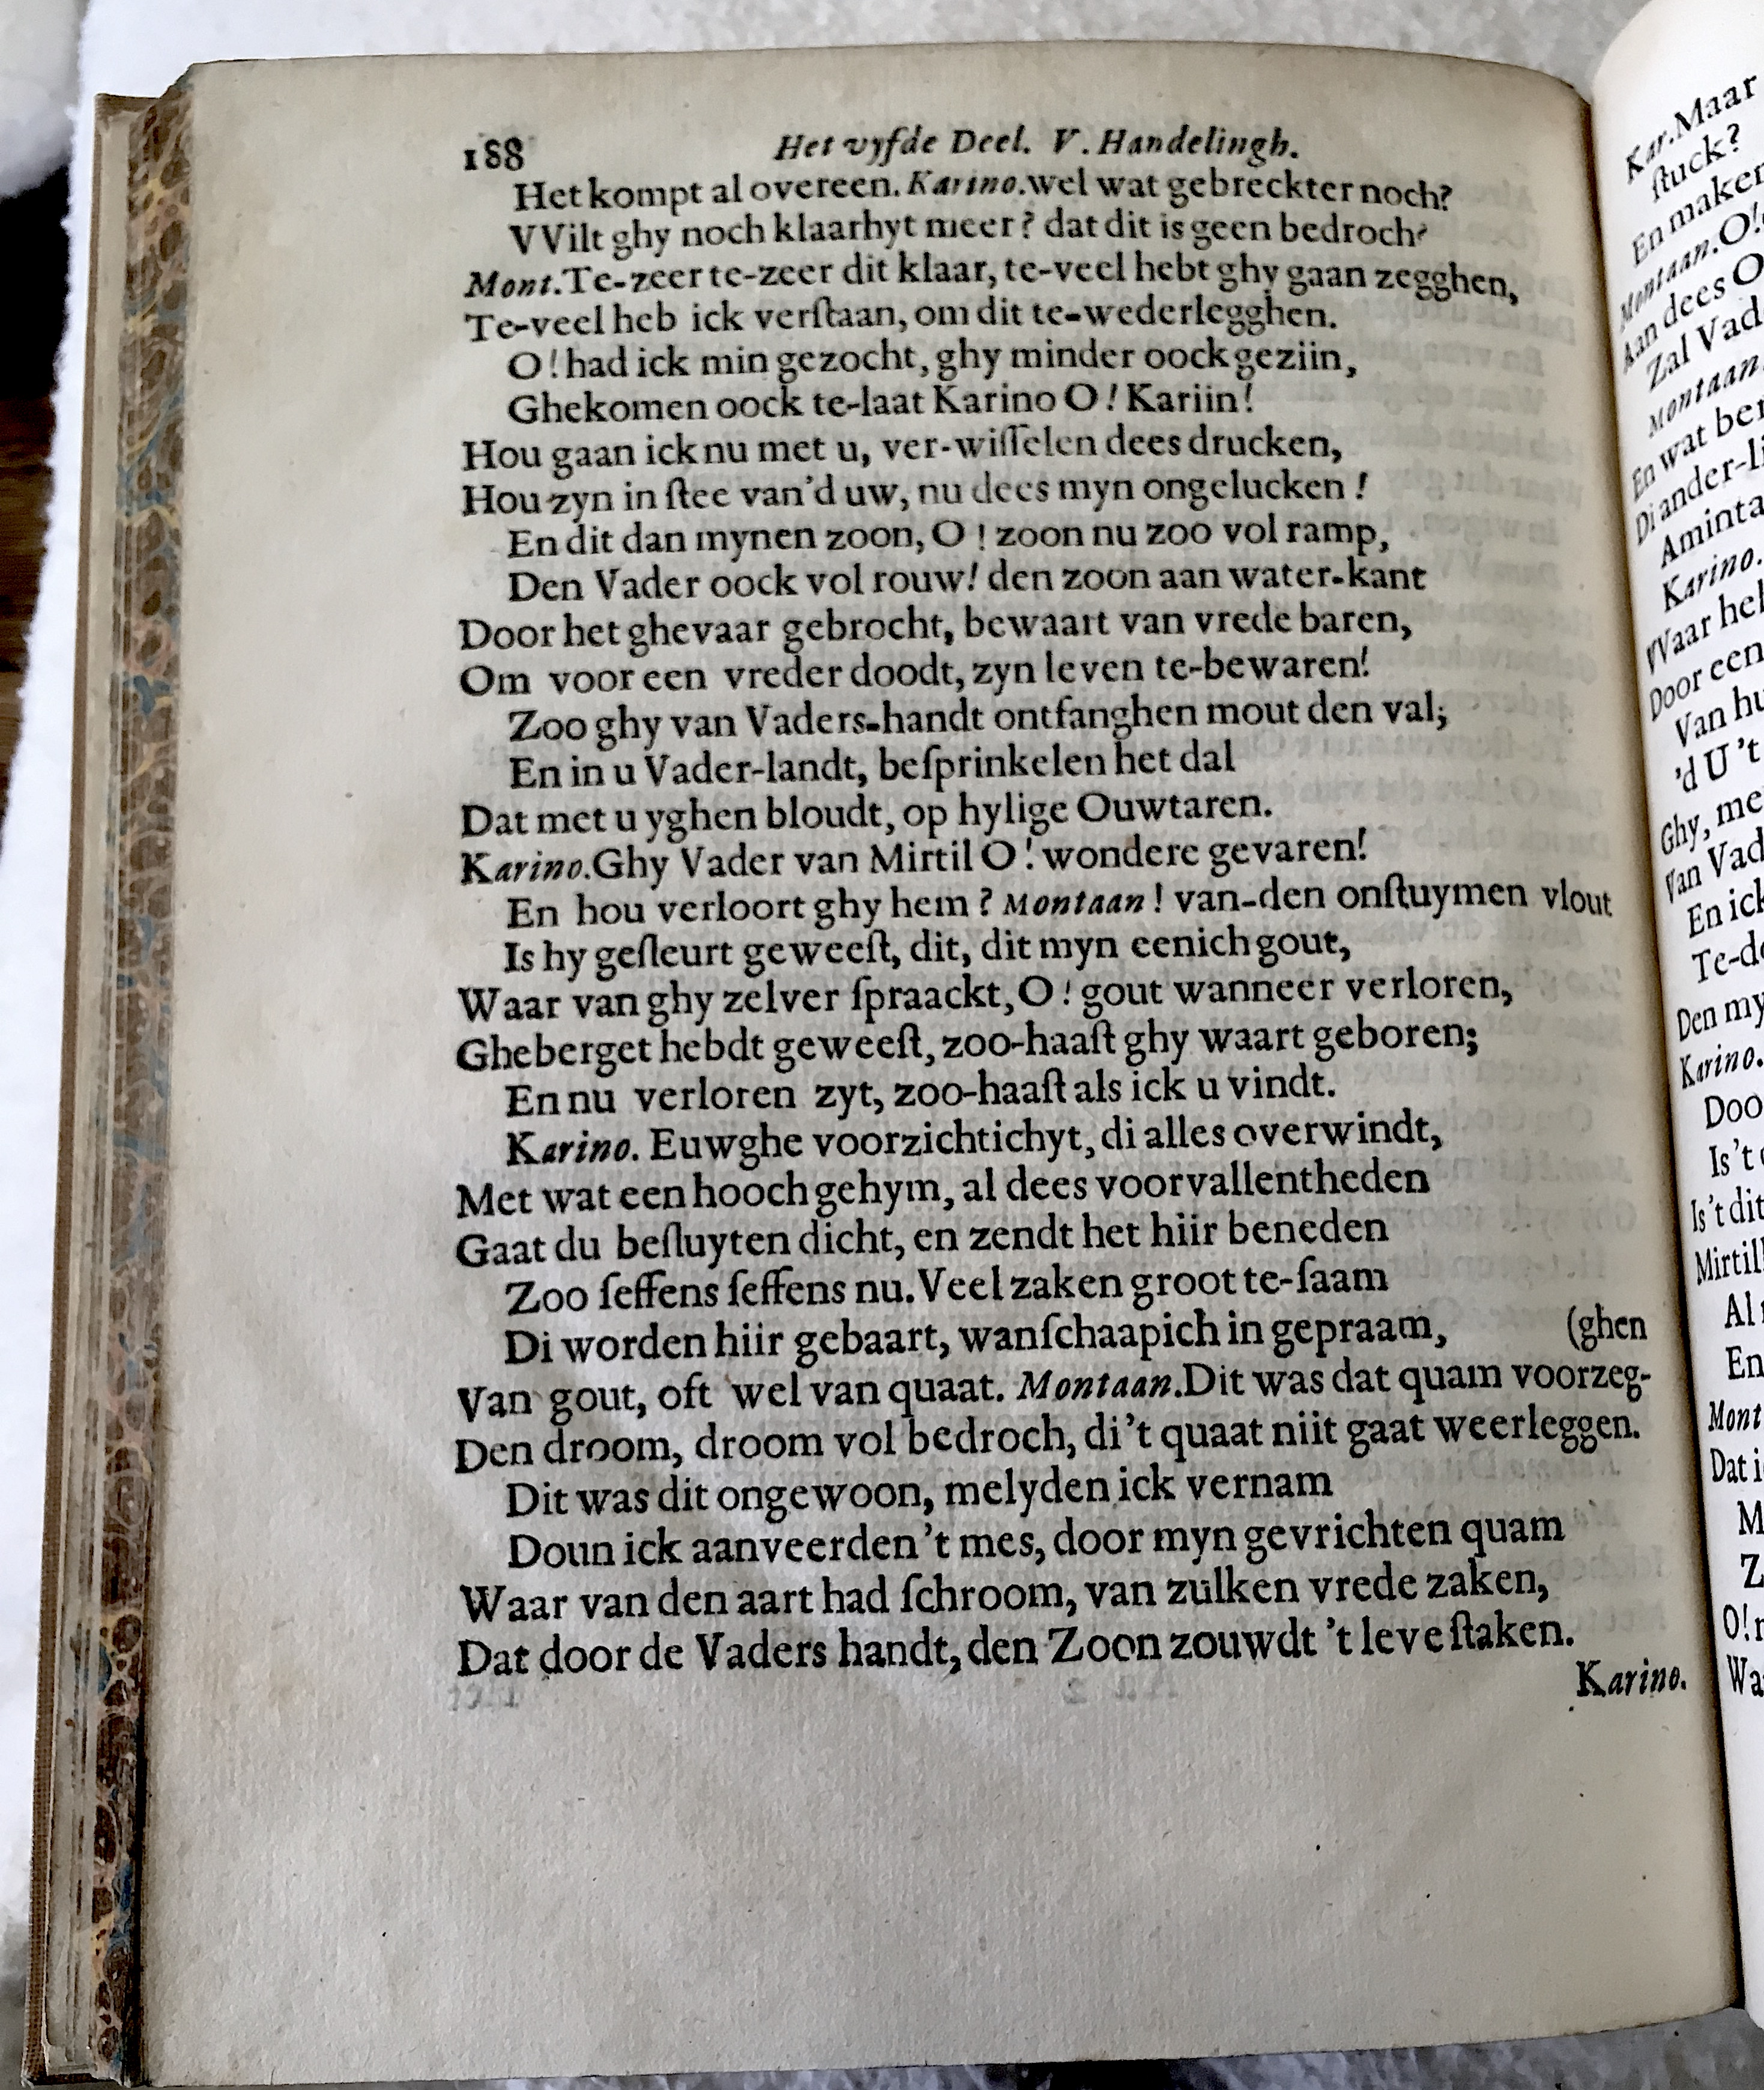 188 Het vyfde Deel. V. Handelingh.
Het kompt al overeen. Karino. wel wat gebreckter noch?
VVilt ghy noch klaarhyt meer? dat dit is geen bedroch?
Mont. Te-zeer te-zeer dit klaar, te-veel hebt ghy gaan zegghen,
Te-veel heb ick verſtaan, om dit te-wederlegghen.
O! had ick min gezocht, ghy minder oock geziin,
Ghekomen oock te-laat Karino O! Kariin!
Hou gaan ick nu met u, ver-wiſſelen dees drucken,
Hou zyn in ſtee van'd uw, nu dees myn ongelucken!
En dit dan mynen zoon, O! zoon nu zoo vol ramp,
Den Vader oock vol rouw! den zoon aan water-kant
Door het ghevaar gebrocht, bewaart van vrede baren,
Om voor een vreder doodt, zyn leven te-bewaren!
Zoo ghy van Vaders-handt ontfanghen mout den val;
En in u Vader-landt, beſprinkelen het dal
Dat met u yghen bloudt, op hylige Ouwtaren.
Karino. Ghy Vader van Mirtil O! wondere gevaren!
En hou verloort ghy hem? Montaan! van-den onſtuymen vlout
Is hy geſleurt geweeſt, dit, dit myn eenich gout,
Waar van ghy zelver ſpraackt, O! gout wanneer verloren,
Gheberget hebdt geweeſt, zoo-haaſt ghy waart geboren;
En nu verloren zyt, zoo-haaſt als ick u vindt.
Karino. Euwghe voorzichtichyt, di alles overwindt,
Met wat een hooch gehym, al dees voorvallentheden
Gaat du beſluyten dicht, en zendt het hiir beneden
Zoo ſeffens ſeffens nu. Veel zaken groot te-ſaam
Di worden hiir gebaart, wanſchaapich in gepraam, (ghen
Van gout, oft wel van quaat. Montaan. Dit was dat quam voorzeg-
Den droom, droom vol bedroch, di't quaat niit gaat weerleggen.
Dit was dit ongewoon, melyden ick vernam
Doun ick aanveerden't mes, door myn gevrichten quam
Waar van den aart had ſchroom, van zulken vrede zaken,
Dat door de Vaders handt, den Zoon zouwdt 't leve ſtaken.
Karino.
Kar. Maar
ſtuck?
En maken
Montaan. O!
Aan dees O
Zal Vad
Montaan.
En wat ber
Di ander-li
Aminta
Karino.
VVaar heb
Door een
Van hu
'd U 't
Ghy, me
Van Vad
En ick
Te-d
Den my
Karino.
Doo
Is't
Is't dit
Mirtil
Al
En
Mont
Dat i
M
Z
O!
Wa